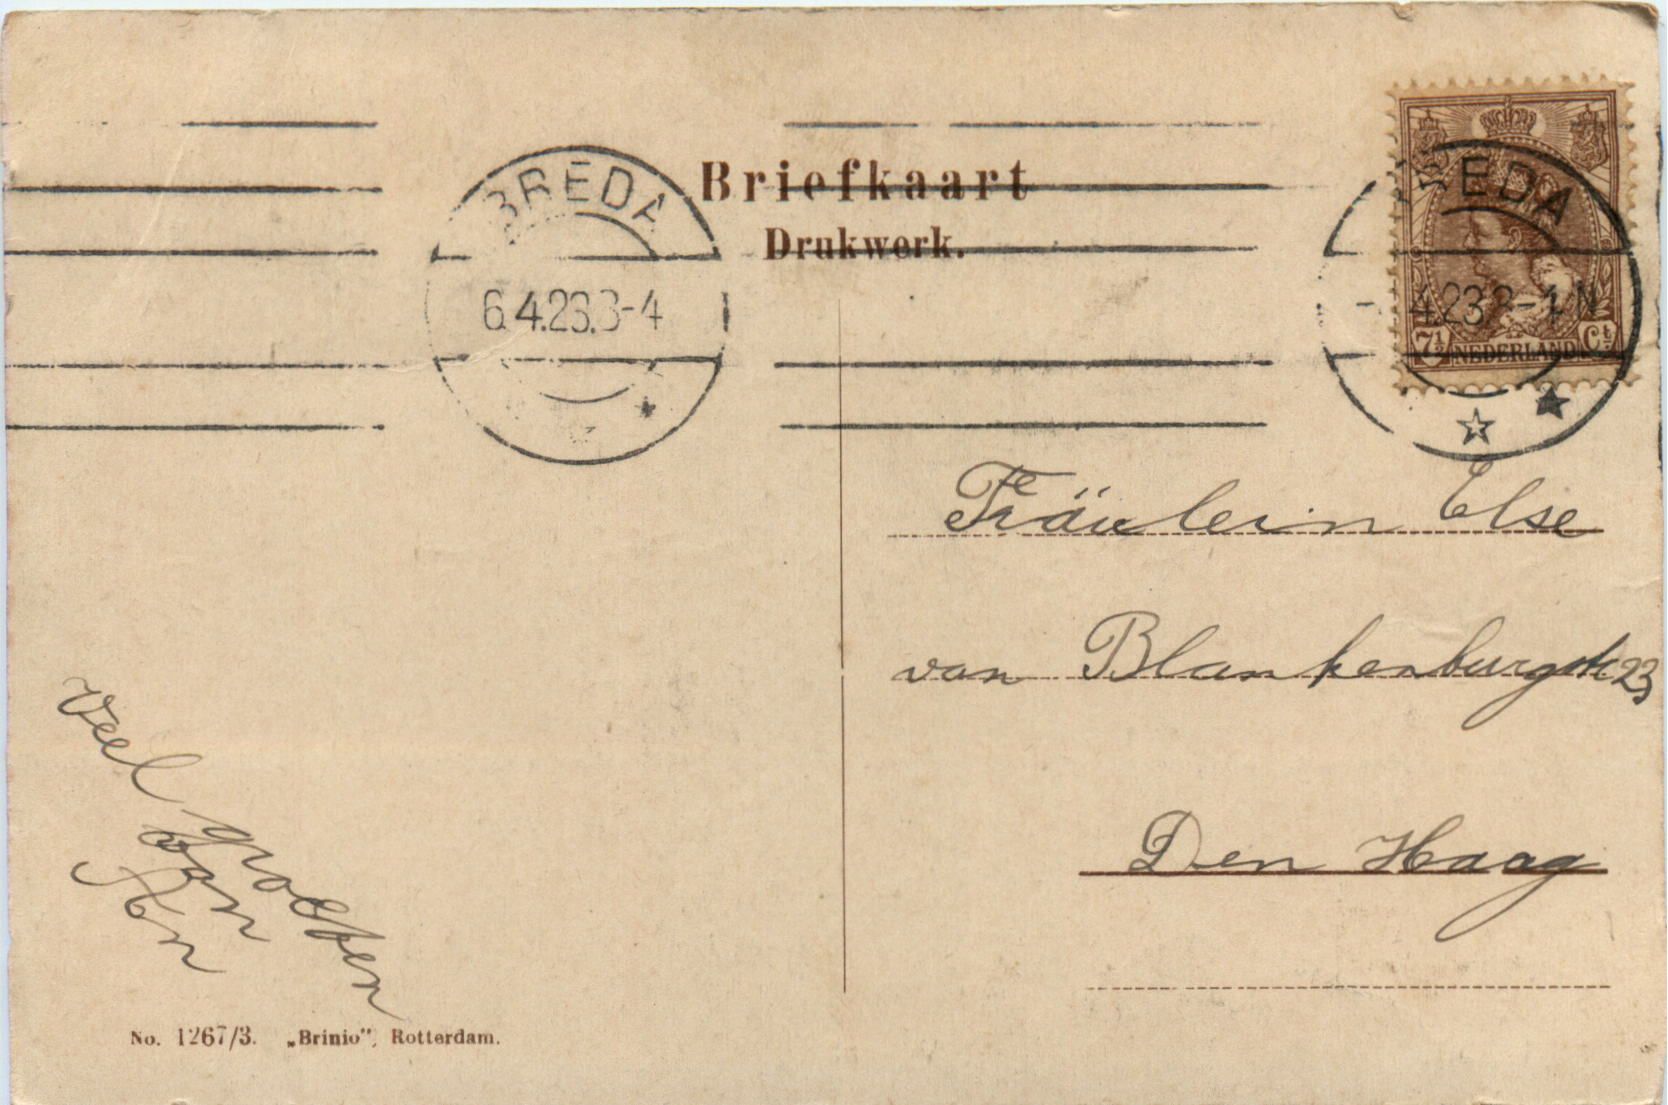 Briefkaart
Drukwerk.
BREDA
6.4.23.3-4
EDA
4.23.3-4 N
7½ NEDERLAND Ct
Fräulein Else
van Blankenburgstr 23
Den Haag
Veel groeten
van
An
No. 1267/3. „Brinio”, Rotterdam.